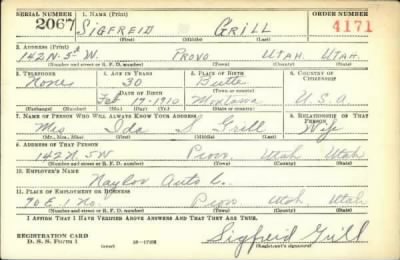 SERIAL NUMBER 1. NAME (Print) ORDER NUMBER
2067 SIGFREID GRILL 4171
(First) (Middle) (Last)
2. ADDRESS (Print)
142 N. 5th W. PROVO UTAH. UTAH.
(Number and street or R. F. D. number) (Town) (County) (State)
3. TELEPHONE 4. AGE IN YEARS 5. PLACE OF BIRTH 6. COUNTRY OF CITIZENSHIP
None 30 Butte
DATE OF BIRTH (Town or county)
Feb 19-1910 Montana U.S.A
(Exchange) (Number) (Mo.) (Day) (Yr.) (State or country)
7. NAME OF PERSON WHO WILL ALWAYS KNOW YOUR ADDRESS 8. RELATIONSHIP OF THAT PERSON
Mrs Ida S Grill Wife
(Mr., Mrs., Miss) (First) (Middle) (Last)
9. ADDRESS OF THAT PERSON
142 N. 5W Provo Utah Utah
(Number and street or R. F. D. number) (Town) (County) (State)
10. EMPLOYER'S NAME
Naylor Auto Co.
11. PLACE OF EMPLOYMENT OR BUSINESS
70 E. 1 No. Provo Utah Utah
(Number and street or R. F. D. number) (Town) (County) (State)
I AFFIRM THAT I HAVE VERIFIED ABOVE ANSWERS AND THAT THEY ARE TRUE.
REGISTRATION CARD
D. S. S. FORM 1 (over) Sigfreid Grill
(Registrant's signature)